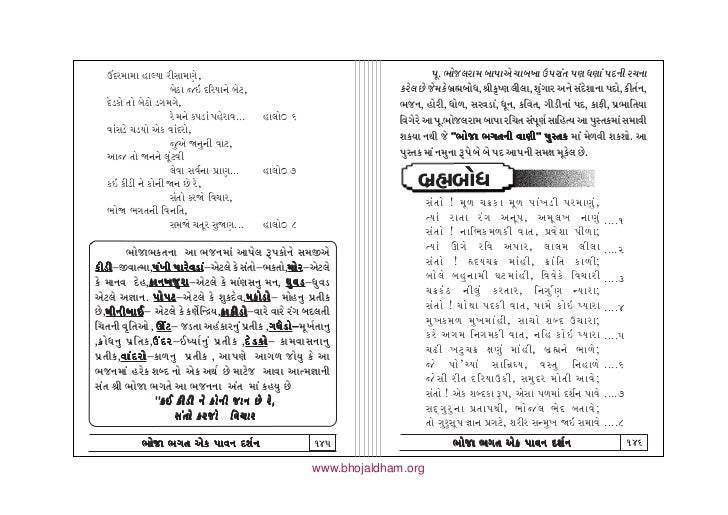 ઉંદરમામા હાલ્યા રીસામણે,
બેઠા જઇ દરિયાને બેટ,
દેડકો તો બેઠો ડગમગે,
રે મને કપડાં પહેરાવ... હાલો૦ ૬
વાંસડે ચડયો એક વાંદરો,
જુએ જાનુની વાટ,
આજ તો જાનને લૂંટવી
લેવા સર્વના પ્રાણ... હાલો૦ ૭
કઇ કીડી ને કોની જાન છે રે,
સંતો કરજો વિચાર,
ભોજા ભગતની વિનતિ,
સમજો ચતૂર સુજાણ... હાલો૦ ૮
ભોજાભકતના આ ભજનમાં આપેલ રૂપકોને સમજીએ
કીડી–જીવાત્મા,પંખી પારેવડાં–એટલે કે સંતો–ભકતો,મોર–એટલે
કે માનવ દેહ,કાનખજુરા–એટલે કે માંણસનુ મન, ઘુવડ–ધુવડ
એટલે અજ્ઞાન. પોપટ–એટલે કે શુકદેવ,મકોડો– મોહનુ પ્રતીક
છે,મીનીબાઈ– એટલે કે કર્ણેન્દ્રિય,કાકીડો–વારે વારે રંગ બદલતી
ચિતની વૃતિઓ , ઊંટ– જડતા અહંકારનું પ્રતીક ,ગધેડો–મૂર્ખતાનુ
,ક્રોધનુ પ્રતિક,ઉંદર–ઈર્ષ્યાનું પ્રતીક ,દેડકો– કામવાસનાનુ
પ્રતીક,વાંદરો–કાળનુ પ્રતીક , આપણે આગળ જોયુ કે આ
ભજનમાં હરેક શબ્દ નો એક અર્થ છે માટેજ આવા આત્મજ્ઞાની
સંત શ્રી ભોજા ભગતે આ ભજનના અંત માં કહયુ છે
"કઈ કીડી ને કોની જાન છે રે,
સંતો કરજો વિચાર
ભોજા ભગત એક પાવન દર્શન ૧૪૫
પૂ. ભોજલરામ બાપાએ ચાબખા ઉપરાંત પણ ઘણાં પદની રચના
કરેલ છે જેમકે બ્રહ્મબોધ, શ્રીકૃષ્ણ લીલા, શૃંગાર અને સંદેશાના પદો, કીર્તન,
ભજન, હોરી, ધોળ, સરવડાં, ધૂન, કવિત, ગીડીનાં પદ, કાફી, પ્રભાતિયા
વિગેરે આ પૂ.ભોજલરામ બાપા રચિત સંપૂર્ણ સાહિત્ય આ પુસ્તકમાં સમાવી
શકયા નથી જે "ભોજા ભગતની વાણી" પુસ્તક માં મેળવી શકશો. આ
પુસ્તક માં નમુના રૂપે બે બે પદ આપની સમક્ષ મૂકેલ છે.
બ્રહ્મબોધ
સંતો ! મૂળ ચક્રકા મૂળ પાંખડી પરમાણું,
ત્યાં રાતા રંગ અનૂપ, અમૂલખ નાણું ....૧
સંતો ! નાભિકમળકી વાત, પ્રવેશા પીળા;
ત્યાં ઊગે રવિ અપાર, લાલમ લીલા ....૨
સંતો ! હૃદયચક્ર માંહી, ક્રાંતિ કાળી;
બોલે બહુનામી ઘટમાંહી, વિવેકે વિચારી ....૩
ચક્રકંઠ નીલું કરતાર, નિર્ગુણ ન્યારા;
સંતો ! ચોથા પદકી વાત, પામે કોઇ પ્યારા ....૪
મુખકમળ મુખમાંહી, સાચો શબ્દ ઉચારા;
કરે અગમ નિગમકી વાત, નહિ કોઇ પ્યારા ....૫
ચઢી ખટુચક્ર ક્ષણું માંહી, બ્રહ્મને ભાળે;
જે પો'ચ્યાં સાંનિધ્ય, વસ્તુ નિહાળે ....૬
જેસી રીત દરિયાઉકી, સમુદર મોતી આવે;
સંતો ! એક શબ્દકા રૂપ, એસા પળમાં દર્શન પાવે ....૭
સદ્‌ગુરુના પ્રતાપથી, ભોજલ ભેદ બતાવે;
તો ગુરુસૂપ જ્ઞાન પ્રગટે, શરીર સન્મુખ જાઇ સમાવે ....૮
ભોજા ભગત એક પાવન દર્શન ૧૪૬
www.bhojaldham.org